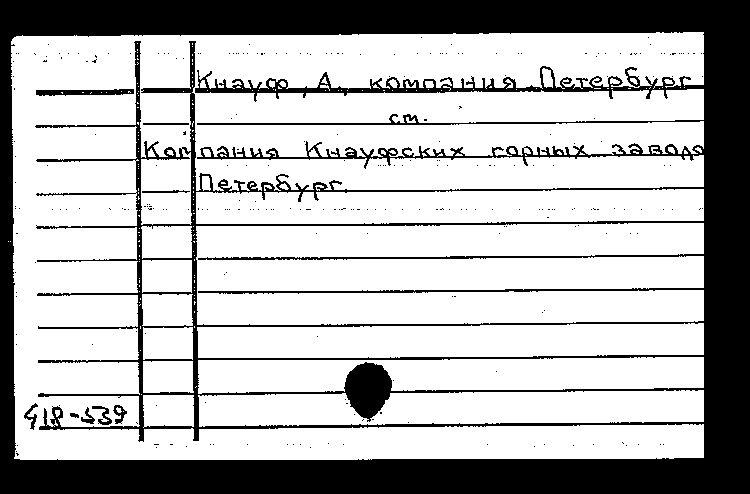 Кнауф, А., компания. Петербург
см.
Компания Кнауфских горных заводо
Петербург.
418-539